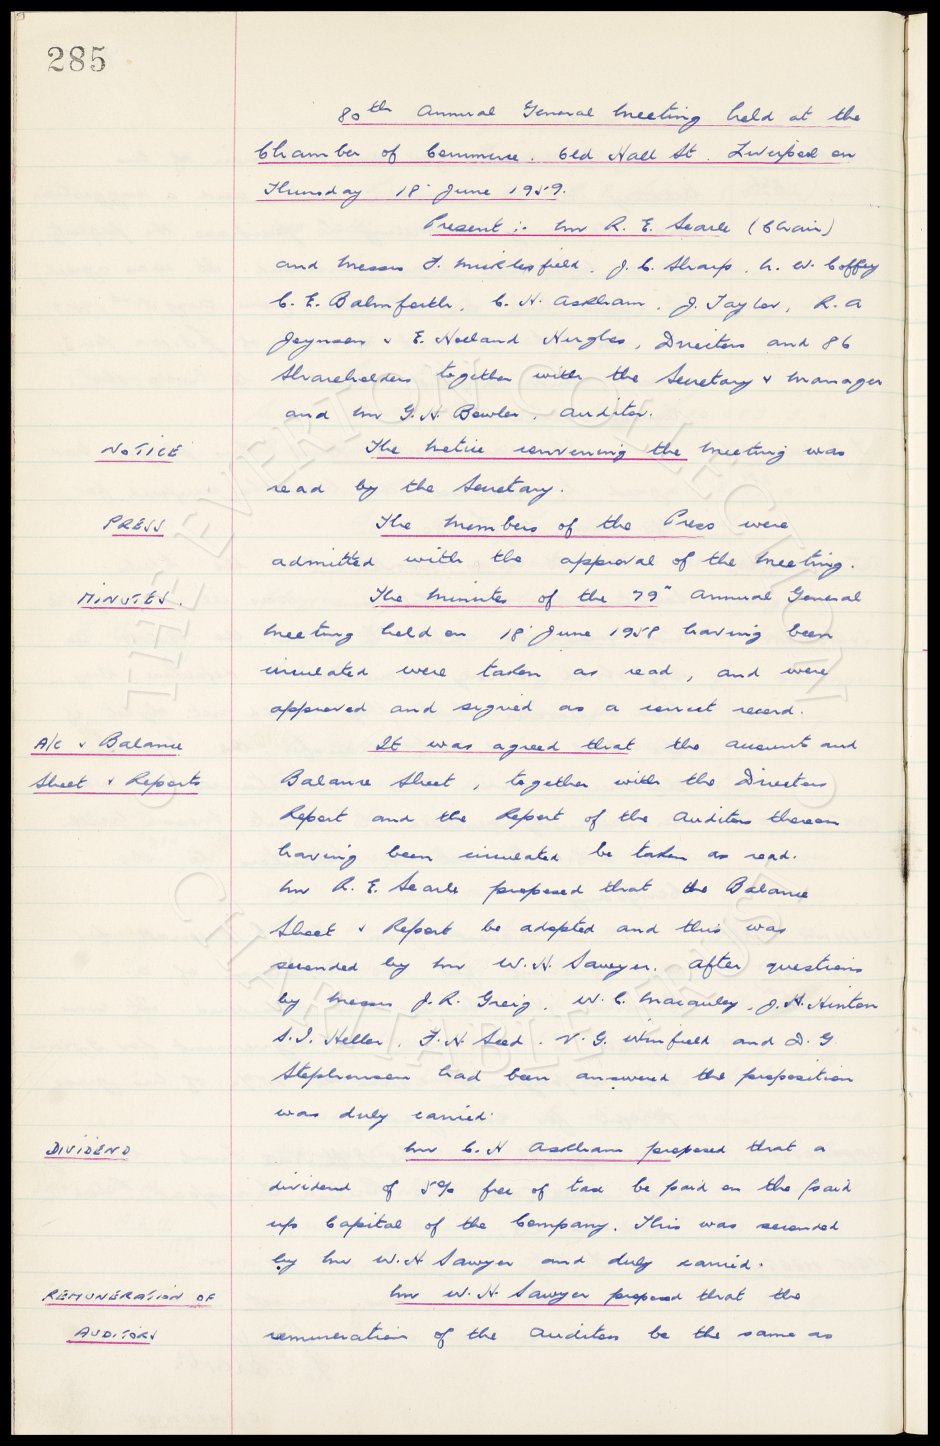 285
80th Annual General Meeting held at the
Chamber of Commerce. Old Hall St. Liverpool on
Thursday 18 June 1959.
Present :- Mr R. E. Searle (Chair)
and Messrs F. Micklesfield. J. C. Sharp. N. W. Coffey
C. E. Balmforth. C. H. Askham. J. Taylor, R. A
Joynson & E. Holland Hughes, Directors and 86
Shareholders together with the Secretary & Manager
and Mr G. H. Bowler. Auditor.
NOTICE The Notice convening the Meeting was
read by the Secretary.
PRESS The Members of the Press were
admitted with the approval of the Meeting.
MINUTES. The Minutes of the 79" Annual General
Meeting held on 18 June 1958 having been
circulated were taken as read, and were
approved and signed as a correct record.
A/c & Balance It was agreed that the Accounts and
Sheet & Reports Balance Sheet, together with the Directors
Report and the Report of the Auditors thereon
having been circulated be taken as read.
Mr R. E. Searle proposed that the Balance
Sheet & Report be adopted and this was
seconded by Mr W. H. Sawyer. After questions
by Messrs J. R. Greig. W. C. Macauley. J. H. Hinton
S. I. Heller. F. H. Seed. V. G. Winfield and D. G.
Stephenson had been answered the proposition
was duly carried.
DIVIDEND Mr C. H Askham proposed that a
dividend of 5% free of tax be paid on the paid
up Capital of the Company. This was seconded
by Mr W. H Sawyer and duly carried.
REMUNERATION OF Mr W. H. Sawyer proposed that the
AUDITORS remuneration of the Auditors be the same as
© THE EVERTON COLLECTION
CHARITABLE TRUST